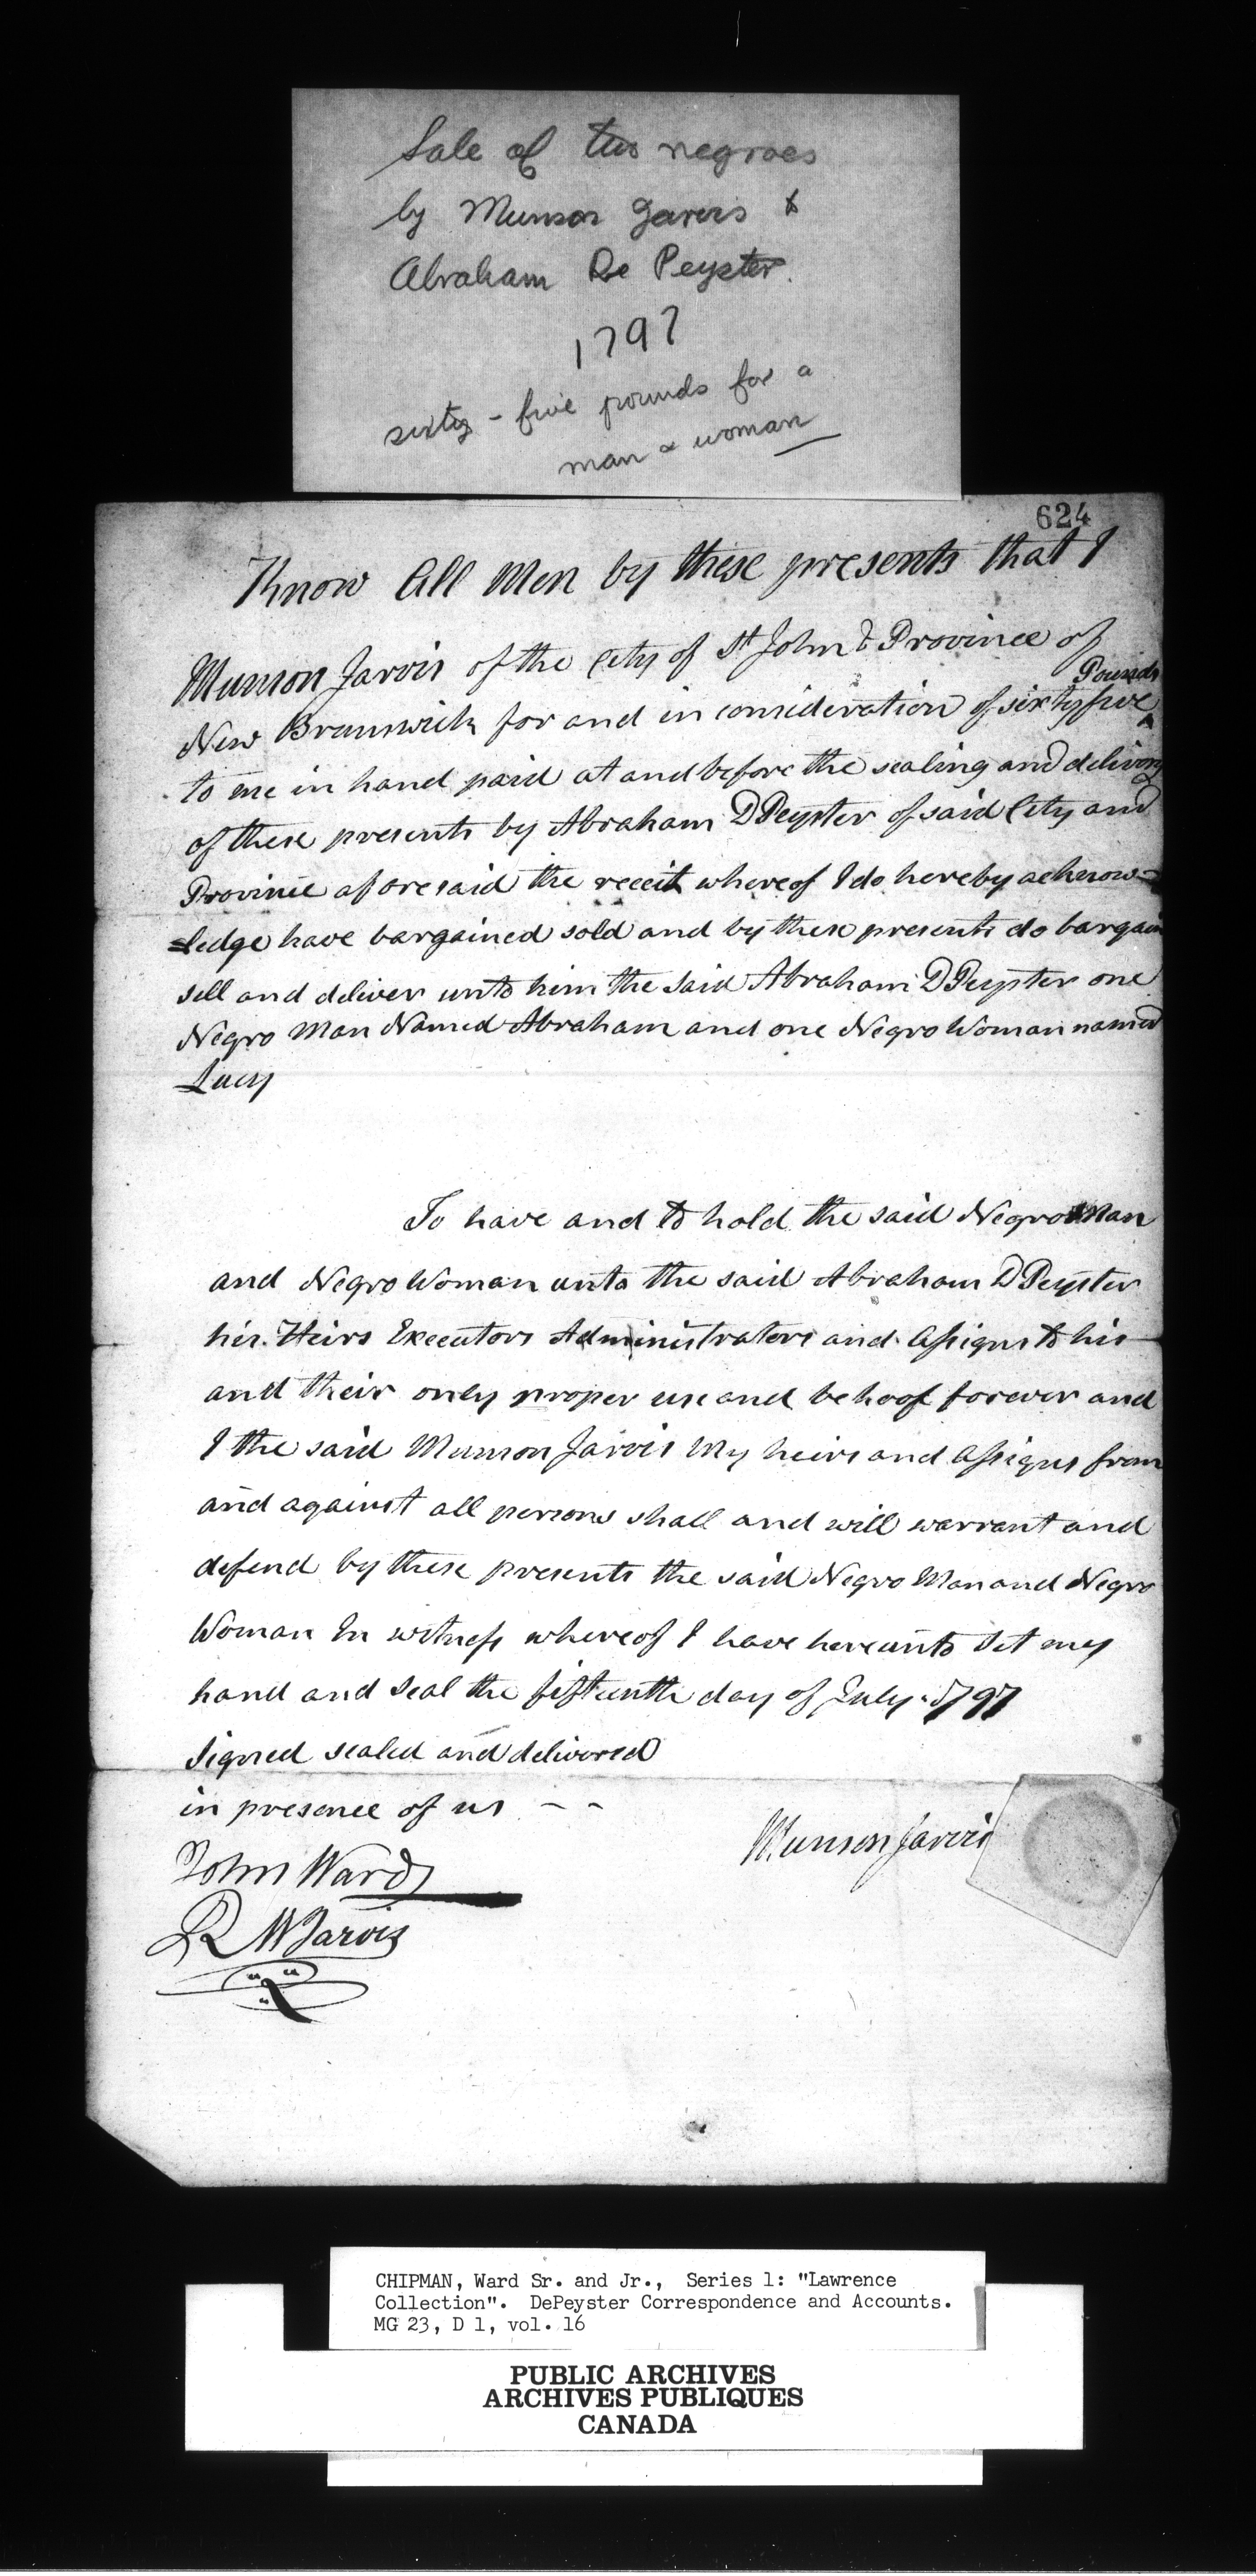 Sale of two negroes
by Munson Jarvis &
Abraham De Peyster.
1797
sixty-five pounds for a
man & woman
624
Know All Men by these presents that I
Munson Jarvis of the City of St John & Province of
New Brunswick for and in consideration of sixty five Pounds
to me in hand paid at and before the sealing and delivery
of these presents by Abraham D Peyster of said City and
Province aforesaid the receit whereof I do hereby acknow-
-ledge have bargained sold and by these presents do bargain
sell and deliver unto him the said Abraham D Peyster one
Negro Man Named Abraham and one Negro Woman named
Lucy
To have and to hold the said Negro Man
and Negro Woman unto the said Abraham D Peyster
his Heirs Executors Administrators and Assigns to his
and their only proper use and behoof forever and
I the said Munson Jarvis My heirs and Assigns from
and against all persons shall and will warrant and
defend by these presents the said Negro Man and Negro
Woman In witness whereof I have hereunto Set my
hand and Seal the fifteenth day of July 1797
Signed sealed and delivered
in presence of us - -
Munson Jarvis
John Ward
R W Jarvis
CHIPMAN, Ward Sr. and Jr., Series 1: "Lawrence
Collection". DePeyster Correspondence and Accounts.
MG 23, D 1, vol. 16
PUBLIC ARCHIVES
ARCHIVES PUBLIQUES
CANADA